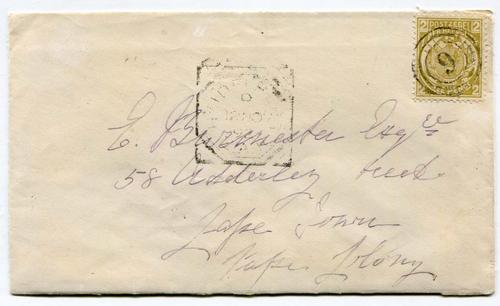 2 POSTAGE 2
9
C. Burmester Esqre
58 Adderley Street
Cape Town
Cape Colony